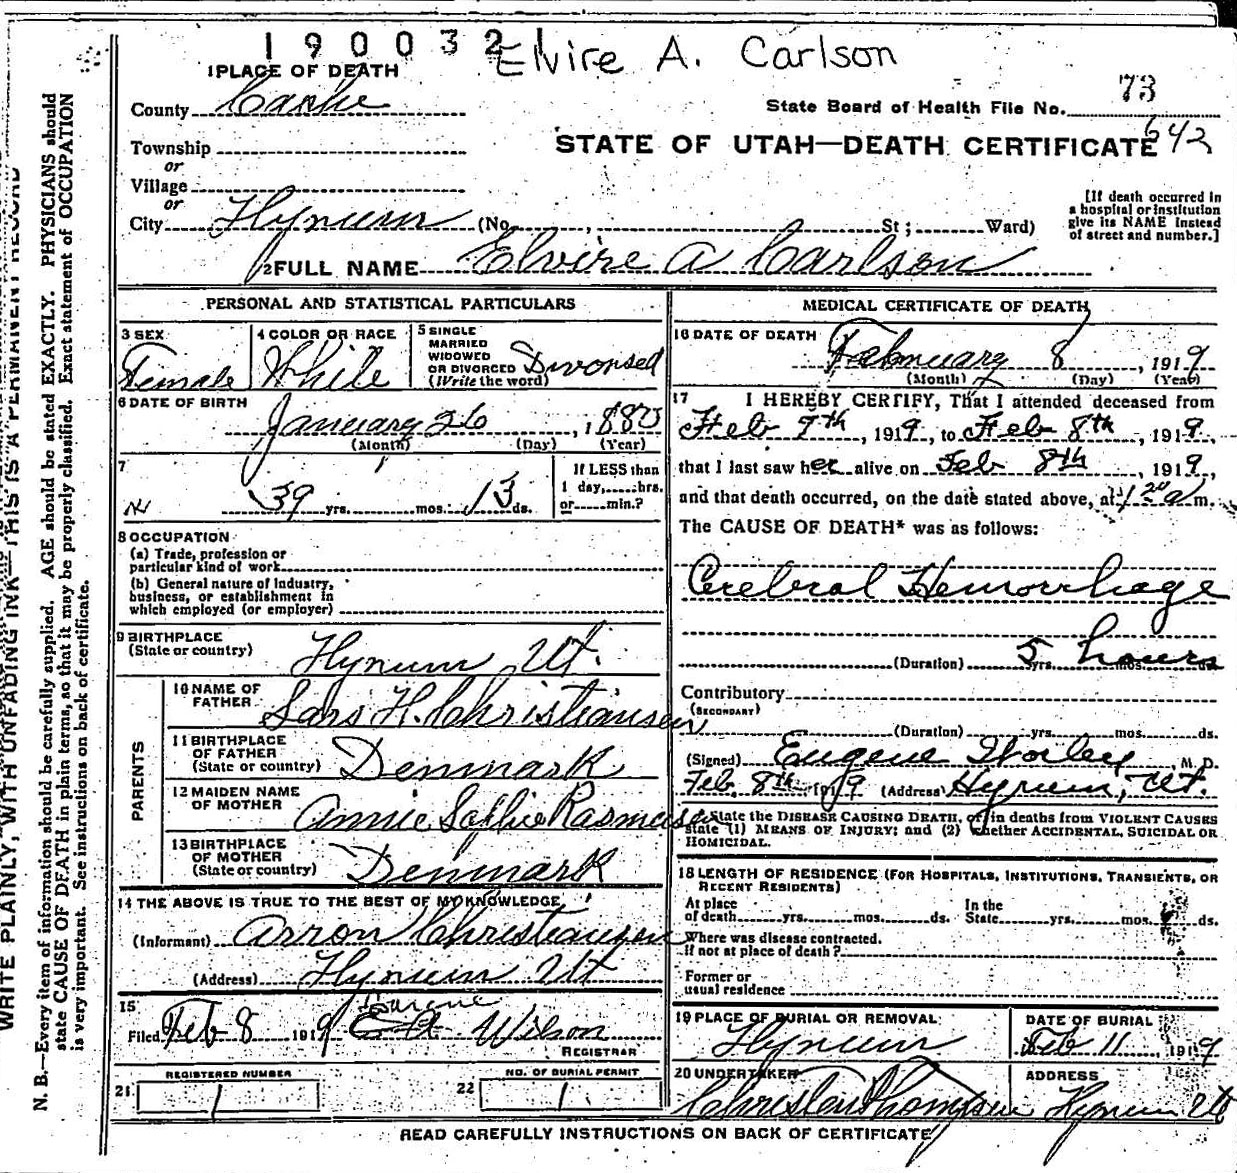 1900321 Elvire A. Carlson
1 PLACE OF DEATH
County Cache
State Board of Health File No. 73
Township
STATE OF UTAH—DEATH CERTIFICATE 642
or
Village
or
City Hyrum (No. , St; Ward)
[If death occurred in a hospital or institution give its NAME instead of street and number.]
2 FULL NAME Elvire A Carlson
PERSONAL AND STATISTICAL PARTICULARS
3 SEX Female
4 COLOR OR RACE White
5 SINGLE MARRIED WIDOWED OR DIVORCED (Write the word) Divorsed
6 DATE OF BIRTH
January 26, 188
(Month) (Day) (Year)
7 39 yrs. mos. 13 ds.
If LESS than 1 day, hrs. or min.?
8 OCCUPATION
(a) Trade, profession or particular kind of work
(b) General nature of Industry, business, or establishment in which employed (or employer)
9 BIRTHPLACE
(State or country) Hyrum Ut.
PARENTS
10 NAME OF FATHER Lars H. Christiansen
11 BIRTHPLACE OF FATHER (State or country) Denmark
12 MAIDEN NAME OF MOTHER Annie Soffie Rasmusen
13 BIRTHPLACE OF MOTHER (State or country) Denmark
14 THE ABOVE IS TRUE TO THE BEST OF MY KNOWLEDGE
(Informant) Arron Christiansen
(Address) Hyrum Ut
15
Filed Feb 8 1919 Wilson
REGISTRAR
REGISTERED NUMBER
21 1
NO. OF BURIAL PERMIT
22 1
MEDICAL CERTIFICATE OF DEATH
16 DATE OF DEATH
February 8, 1919
(Month) (Day) (Year)
17 I HEREBY CERTIFY, That I attended deceased from
Feb 7th, 1919, to Feb 8th, 1919,
that I last saw her alive on Feb 8th, 1919,
and that death occurred, on the date stated above, at 1 20 a m.
The CAUSE OF DEATH* was as follows:
Cerebral Hemorrhage
(Duration) 5 yrs. hours mos. ds.
Contributory
(SECONDARY)
(Duration) yrs. mos. ds.
(Signed) Eugene Worley, M. D.
Feb. 8th 1919 (Address) Hyrum, Ut.
*State the DISEASE CAUSING DEATH, or in deaths from VIOLENT CAUSES
state (1) MEANS OF INJURY; and (2) whether ACCIDENTAL, SUICIDAL OR
HOMICIDAL.
18 LENGTH OF RESIDENCE (FOR HOSPITALS, INSTITUTIONS, TRANSIENTS, OR
RECENT RESIDENTS)
At place of death yrs. mos. ds. In the State yrs. mos. ds.
Where was disease contracted.
If not at place of death?
Former or
usual residence
19 PLACE OF BURIAL OR REMOVAL
Hyrum
DATE OF BURIAL
Feb 11, 1919
20 UNDERTAKER
Christen Thompson
ADDRESS
Hyrum Ut
READ CAREFULLY INSTRUCTIONS ON BACK OF CERTIFICATE
WRITE PLAINLY, WITH UNFADING INK—THIS IS A PERMANENT RECORD
N. B.—Every item of information should be carefully supplied. AGE should be stated EXACTLY. PHYSICIANS should
state CAUSE OF DEATH in plain terms, so that it may be properly classified. Exact statement of OCCUPATION
is very important. See instructions on back of certificate.